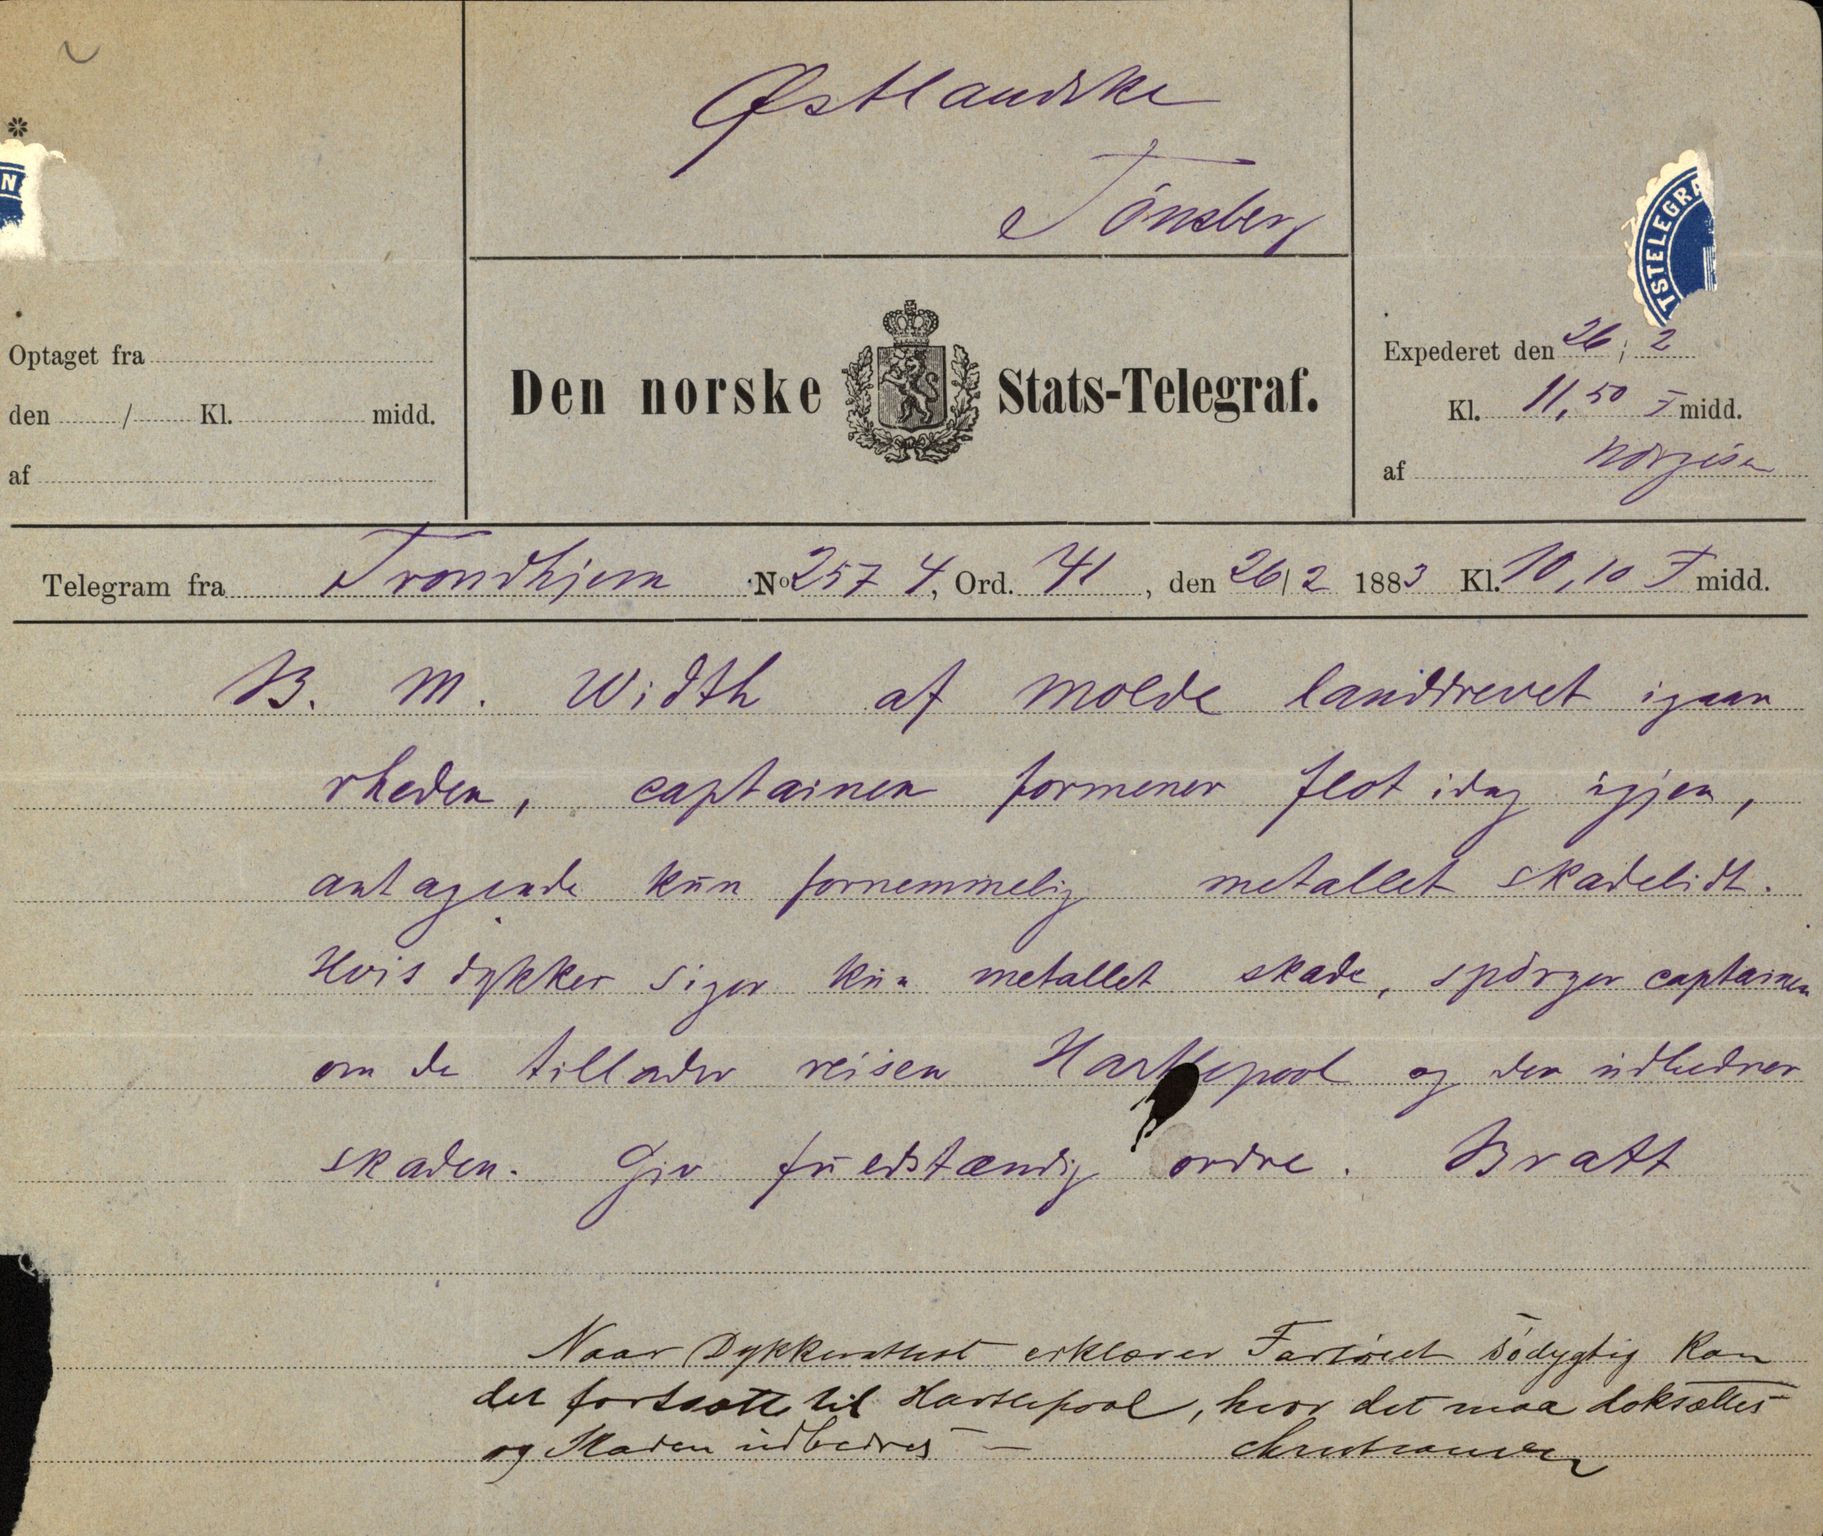 Østlandske
Tönsberg
N
TSTELEGRA
Optaget fra
den / Kl. midd.
af
Den norske Stats-Telegraf.
Expederet den 26 / 2
Kl. 11,50 F midd.
af
Telegram fra Trondhjem No 257 4, Ord. 41, den 26/2 1883 Kl. 10,10 F midd.
B. M. Width af Molde landdrevet igaar
rheden, captainen formener flot idag igjen,
antagende kun fornemmelig metallet skadelidt.
Hvis dykker siger kun metallet skade, spörger captainen
om de tillader reisen Hartlepool og der udbedrer
skaden. Giv fuldstændig ordre. Bratt
Naar Dykkerattest erklærer Fartöiet södygtig kan
det fortsætte til Hartlepool, hvor det maa doksættes
og Skaden udbedres – Christiansen